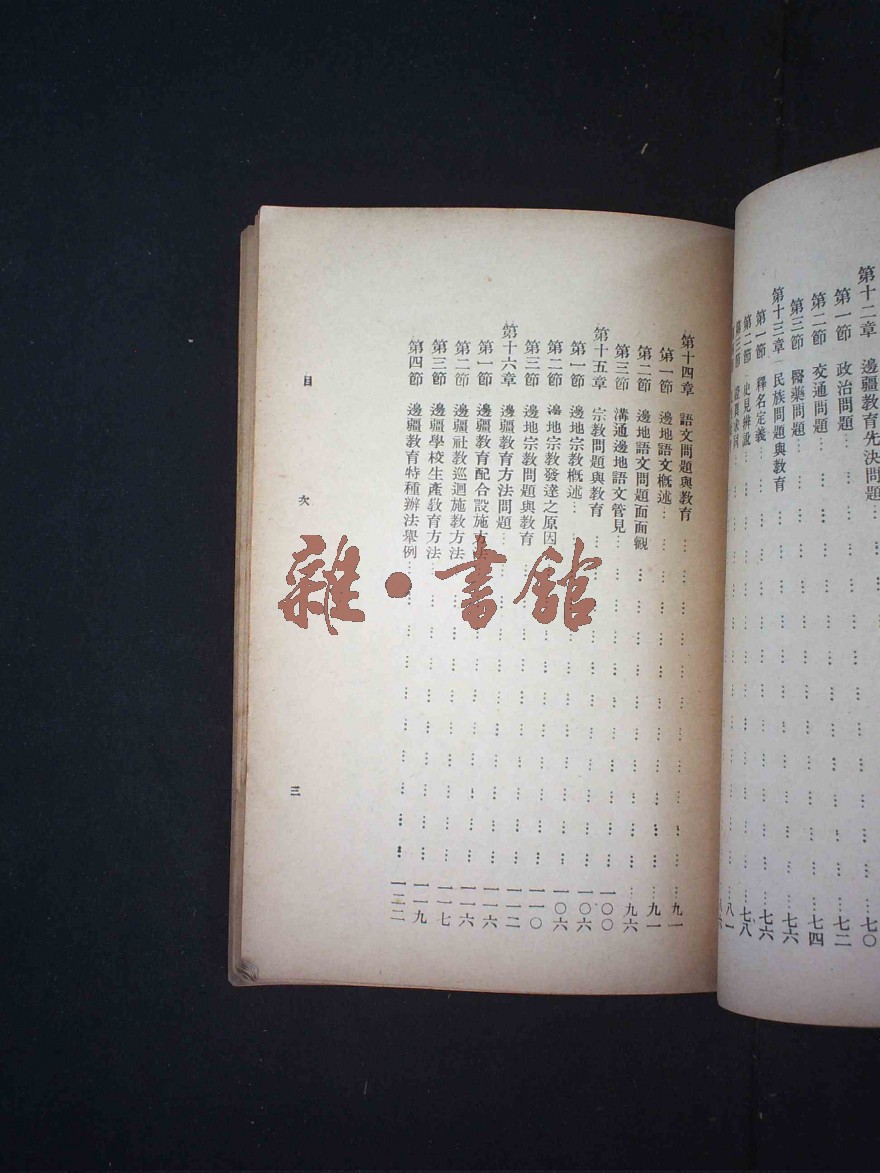 第十二章 邊疆教育先決問題 七〇
第一節 政治問題……七二
第二節 交通問題……七四
第三節 醫藥問題……七六
第十三章 民族問題與教育……七六
第一節 釋名定義……七八
第二節 史見辨認……八一
第三節
第十四章 語文問題與教育……九一
第一節 邊地語文概述……九一
第二節 邊地語文問題面面觀……九六
第三節 溝通邊地語文管見……一〇〇
第十五章 宗教問題與教育……一〇六
第一節 邊地宗教概述……一〇六
第二節 邊地宗教發達之原因……一一〇
第三節 邊地宗教問題與教育……一一二
第十六章 邊疆教育方法問題……一一六
第一節 邊疆教育配合設施方法……一一六
第二節 邊疆社教巡迴施教方法……一一七
第三節 邊疆學校生產教育方法……一一九
第四節 邊疆教育特種辦法舉例……一二二
目 次 三
雜·書館